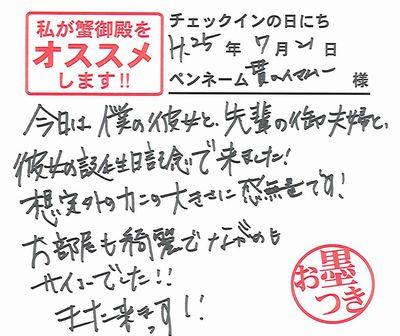 私が蟹御殿を
オススメ
します!!
チェックインの日にち
H.25年7月21日
ペンネーム 貫の 様
今日は僕の彼女と、先輩の御夫婦と、
彼女の誕生日記念で来ました!
想定外のカニの大きさに感無量です!
お部屋も綺麗でながめも
サイコーでした!!
また来まっす!!
お墨つき